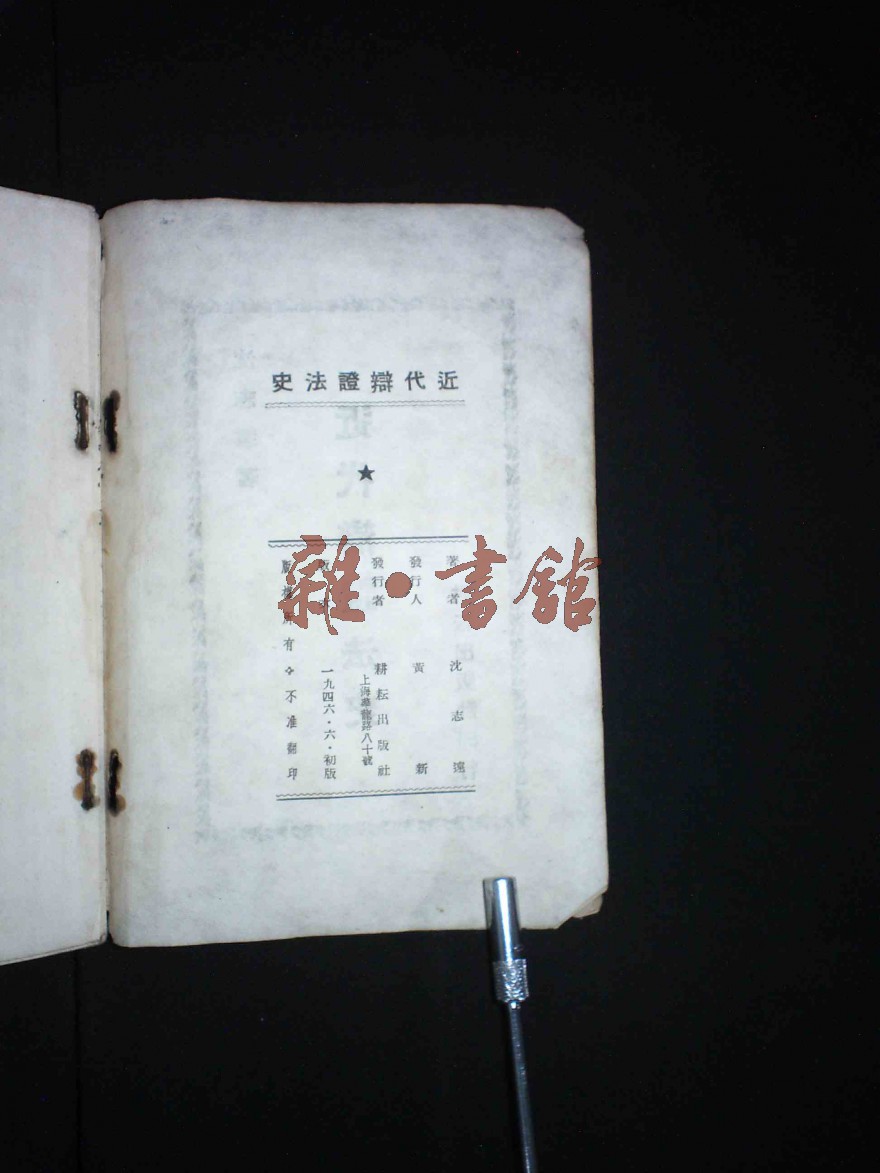 近代辯證法史
★
著者 沈志遠
發行人 黃新
發行者 耕耘出版社
上海華龍路八十號
一九四六·六·初版
所有 不准翻印
雜·書館